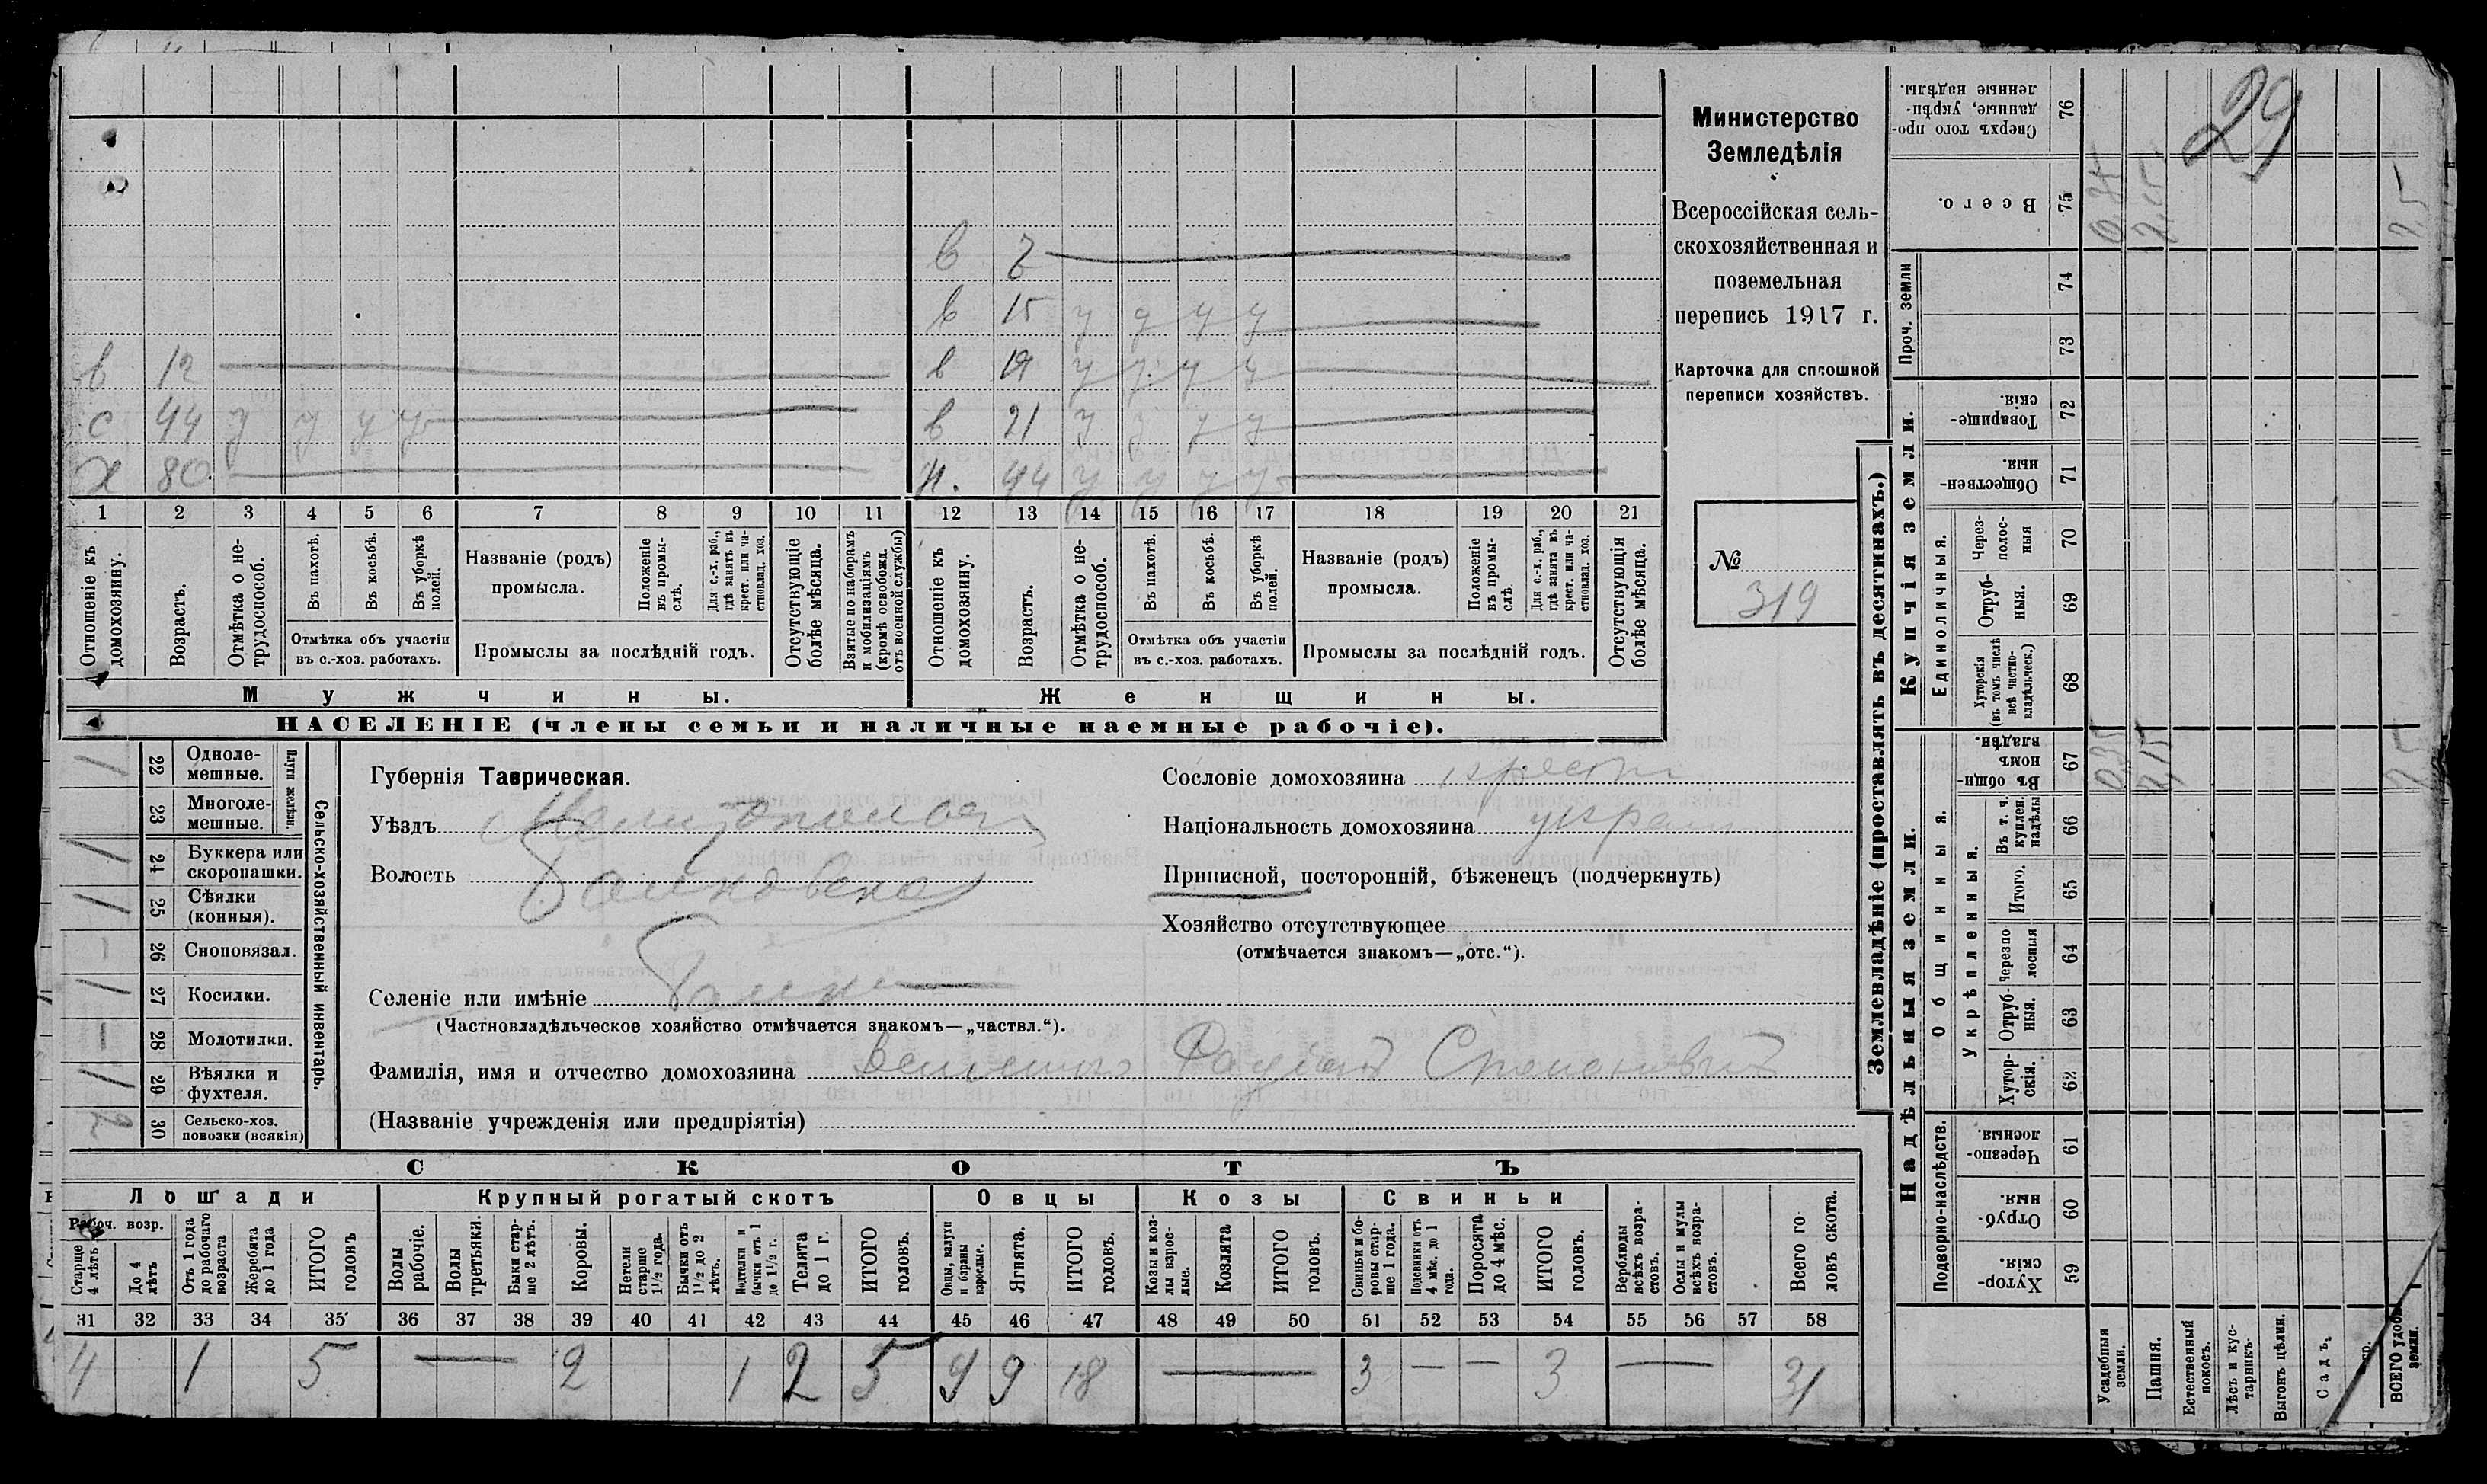 Министерство
Земледѣлія
Всероссійская сель-
скохозяйственная и
поземельная
перепись 1917 г.
Карточка для сплошной
переписи хозяйствъ.
№
319
29
в 7
в 15 у у у у
в 12
в 19 у у у у
с 44 у у у у
в 21 у у у у
х 80
44 у у у у
1 2 3 4 5 6 7 8 9 10 11 12 13 14 15 16 17 18 19 20 21
Отношеніе къ домохозяину.
Возрастъ.
Отмѣтка о не-трудоспособ.
Въ пахотѣ.
Въ косьбѣ.
Въ уборкѣ полей.
Отмѣтка объ участіи
въ с.-хоз. работахъ.
Названіе (родъ)
промысла.
Положеніе въ промы-слѣ.
Для с.-х. раб., гдѣ занятъ въ крест. или ча-стновлад. хоз.
Промыслы за послѣдній годъ.
Отсутствующіе болѣе мѣсяца.
Взятые по наборамъ и мобилизаціямъ (кромѣ освобожд. отъ военной службы)
Отношеніе къ домохозяину.
Возрастъ.
Отмѣтка о не-трудоспособ.
Въ пахотѣ.
Въ косьбѣ.
Въ уборкѣ полей.
Отмѣтка объ участіи
въ с.-хоз. работахъ.
Названіе (родъ)
промысла.
Положеніе въ промы-слѣ
Для с.-х. раб., гдѣ занята въ крест. или ча-стновлад. хоз.
Промыслы за послѣдній годъ.
Отсутствующія болѣе мѣсяца.
Мужчины.
Женщины.
НАСЕЛЕНІЕ (члены семьи и наличные наемные рабочіе).
Сельско-хозяйственный инвентарь.
Плуги желѣзн.
1 22 Одноле-мешные.
23 Многоле-мешные.
1 24 Буккера или скоропашки.
1 25 Сѣялки (конныя).
— 26 Сноповязал.
1 27 Косилки.
— 28 Молотилки.
1 29 Вѣялки и фухтеля.
2 30 Сельско-хоз. повозки (всякія)
Губернія Таврическая.
Уѣздъ Мелитопольск
Волость
Селеніе или имѣніе
(Частновладѣльческое хозяйство отмѣчается знакомъ—„частвл.“).
Фамилія, имя и отчество домохозяина Степановичъ
(Названіе учрежденія или предпріятія)
Сословіе домохозяина крест
Національность домохозяина украин
Приписной, посторонній, бѣженецъ (подчеркнуть)
Хозяйство отсутствующее
(отмѣчается знакомъ—„отс.“).
СКОТЪ
Лошади
Крупный рогатый скотъ
Овцы
Козы
Свиньи
Рабоч. возр.
Старше 4 лѣтъ
До 4 лѣтъ
Отъ 1 года до рабочаго возраста
Жеребята до 1 года
ИТОГО головъ
Волы рабочіе.
Волы третьяки.
Быки стар-ше 2 лѣтъ.
Коровы.
Нетели старше 1½ года.
Бычки отъ 1½ до 2 лѣтъ.
Подтелки и бычки отъ 1 до 1½ г.
Телята до 1 г.
ИТОГО головъ.
Овцы, валухи и бараны взрослые.
Ягнята.
ИТОГО головъ.
Козы и коз-лы взрос-лые.
Козлята
ИТОГО головъ.
Свиньи и бо-ровы стар-ше 1 года.
Подсвинки отъ 4 мѣс. до 1 года.
Поросята до 4 мѣс.
ИТОГО головъ.
Верблюды всѣхъ возра-стовъ.
Ослы и мулы всѣхъ возра-стовъ.
Всего го ловъ скота.
31 32 33 34 35 36 37 38 39 40 41 42 43 44 45 46 47 48 49 50 51 52 53 54 55 56 57 58
4 1 5 — 2 1 2 5 9 9 18 — 3 — — 3 — 31
Землевладѣніе (проставлять въ десятинахъ.)
Купчія земли.
Надѣльныя земли.
Сверхъ того про-данные, укрѣп-ленные надѣлы. 76
Всего. 75
Проч. земли 74 73
Товарище-скія. 72
Обществен-ныя. 71
Единоличныя.
Через-полос-ныя 70
Отруб-ныя. 69
Хуторскія (въ томъ числѣ всѣ частно-владѣльческ.) 68
Общинныя.
Въ общи-номъ владѣн. 67
Укрѣпленныя.
Въ т. ч. куплен. надѣлы 66
Итого. 65
Черезпо лосныя 64
Отруб-ныя. 63
Хутор-скія. 62
Подворно-наслѣдств.
Черезпо-лосныя 61
Отруб-ныя. 60
Хутор-скія. 59
Усадебныя земли.
Пашня.
Естественный покосъ.
Лѣсъ и кус-тарникъ.
Выгонъ цѣлин.
Садъ.
ВСЕГО удобн. земли.
0,35
7,15
7,5
0,35
7,15
7,5